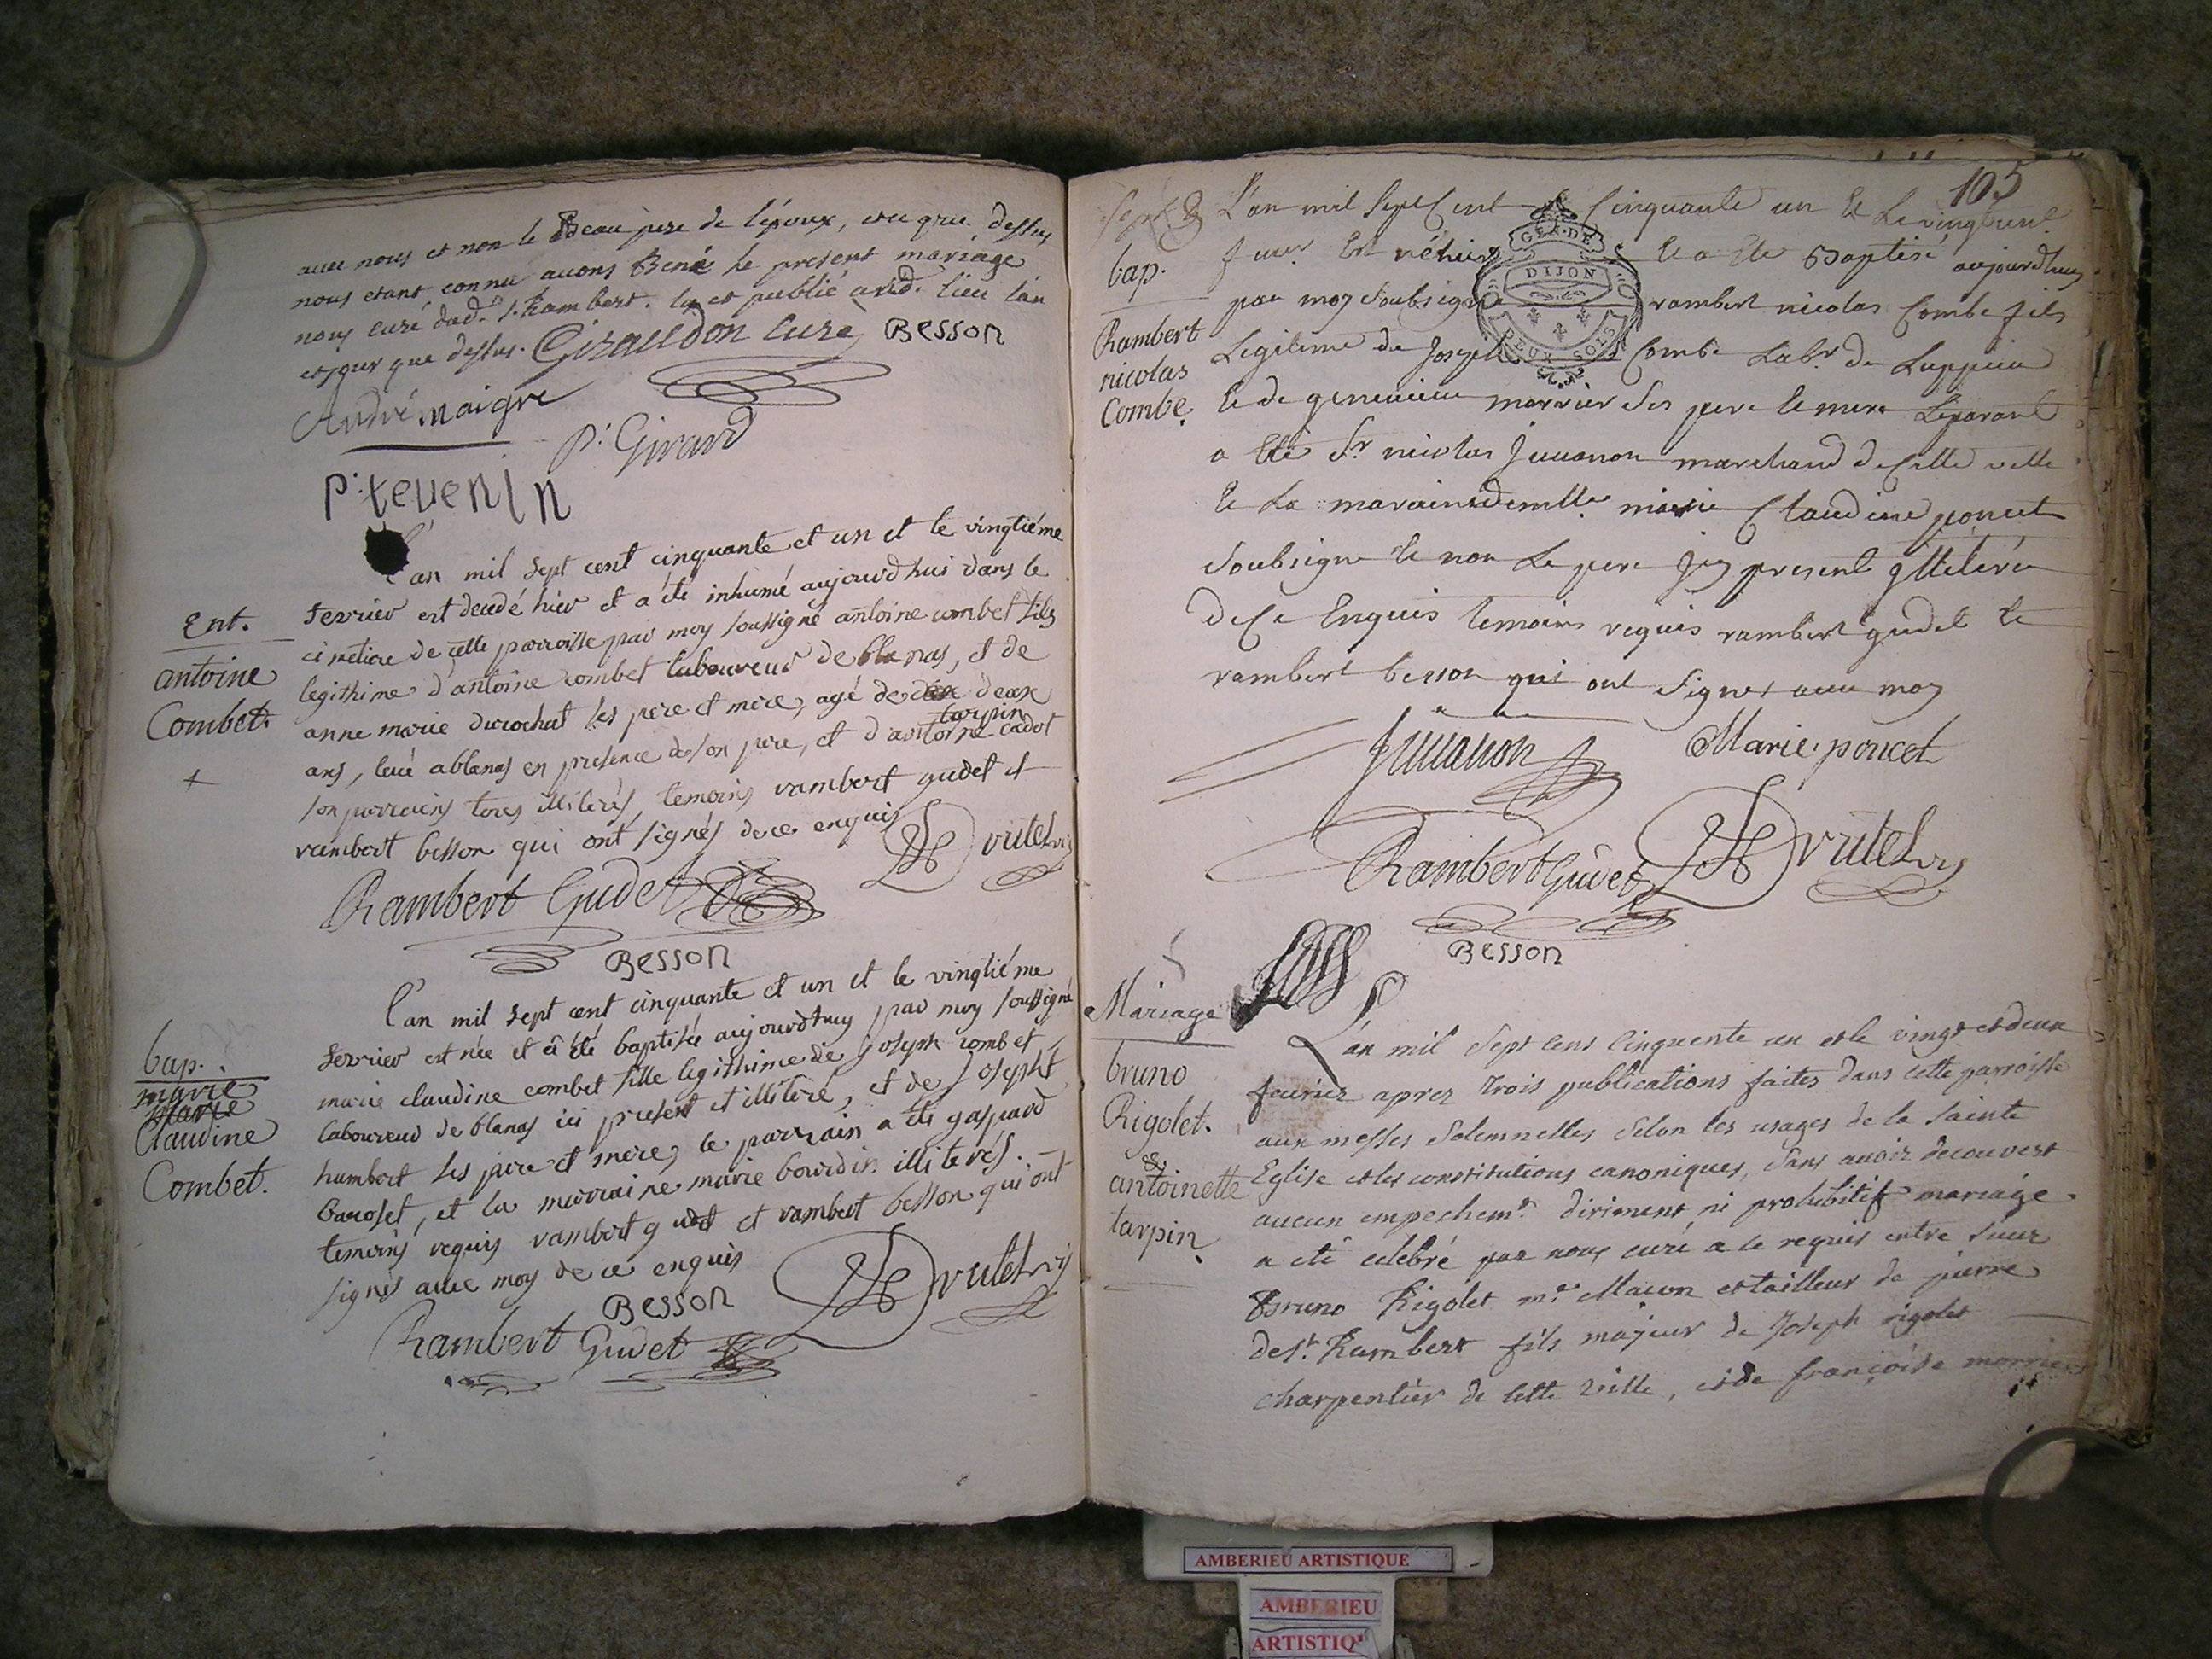 avec nous et non le Beau pere de l'époux, ence que dessus
nous etant connu avons Beni le present mariage
nous curé dud. St. Rambert. lu et publié aud. lieu l'an
et jour que dessus. Giraudon curé Besson
André Maigre
P. Girard
P. tevenin
L'an mil sept cent cinquante et un et le vingtiéme
fevrier est decedé hier et a été inhumé aujourdhui dans le
cimetiere de cette parroisse par moy soussigné antoine combet fils
legithime d'antoine combet laboureur de blanas, et de
anne marie durochat ses pere et mere, agé de deux
ans, levé a blanas en presence de son pere, et d'antoine tarpin cadot
son parrain tous illiterés, temoins rambert gudet et
rambert besson qui ont signés de ce enquis
Ent.
antoine
Combet.
Drutel vic
Rambert Gudet
Besson
L'an mil sept cent cinquante et un et le vingtiéme
fevrier est née et a été baptisée aujourdhuy par moy soussigné
marie claudine combet fille legithime de joseph combet
laboureur de blanas ici present et illiteré, et de josepht
humbert ses pere et mere, le parrain a été gaspard
baroset, et la marraine marie bourdin illiterés.
temoins requis rambert gudet et rambert besson qui ont
signés avec moy de ce enquis
bap.
marie
marie
Claudine
Combet.
Besson
Drutel vic
Rambert Gudet
105
Sept
L'an mil Sept Cent Cinquante un et Le vingtieme
fevr. Est né hier et a Ete Baptisé aujourdhuy
par moy Soubsigné rambert nicolas Combe fils
Legitime de Joseph Combe Labr. de Luppieu
Et de genevieve morrier Ses pere et mere Le parant
a Eté Sr. nicolas Juvanon marchand de Cette ville
Et La maraine demlle. marie Claudine poncet
Soubsigné Et non Le pere Icy present illiteré
de Ce Enquis temoins requis rambert gudet Et
rambert besson qui ont Signes avec moy
bap.
Rambert
nicolas
Combe.
GEN. DE
DIJON
DEUX SOLS
Juvanon
Marie poncet
Rambert Gudet
Drutel vic
Besson
L'an mil Sept cens cinquente un et le vingt et deux
fevrier aprez trois publications faites dans cette parroisse
aux messes Solemnelles Selon les usages de la Sainte
Eglise et les constitutions canoniques, Sans avoir decouvert
aucun empechemt. diriment ni prohibitif mariage
a été celebré par nous curé a ce requis entre Sieur
Bruno Rigolet me. Macon et tailleur de pierre
de St. Rambert fils majeur de Joseph rigolet
charpentier de cette ville, et de françoise morrier
Mariage
bruno
Rigolet.
&
antoinette
tarpin.
AMBERIEU ARTISTIQUE
AMBERIEU
ARTISTIQ